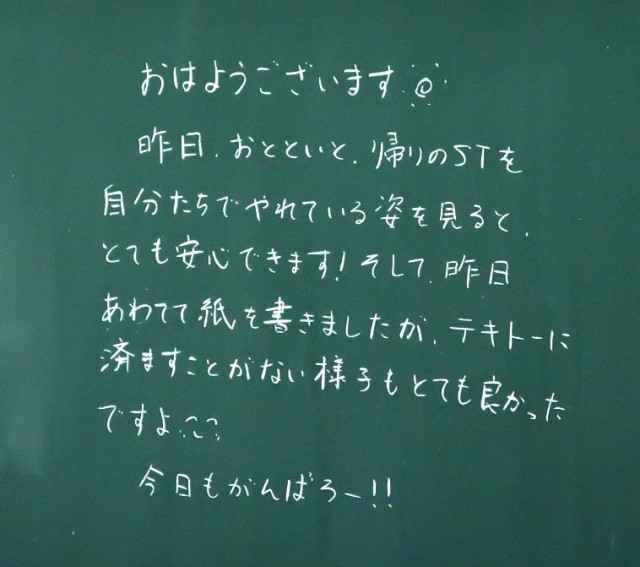 おはようございます
昨日、おとといと、帰りのSTを
自分たちでやれている姿を見ると、
とても安心できます!そして、昨日
あわてて紙を書きましたが、テキトーに
済ますことがない様子もとても良かった
ですよ
今日もがんばろー!!